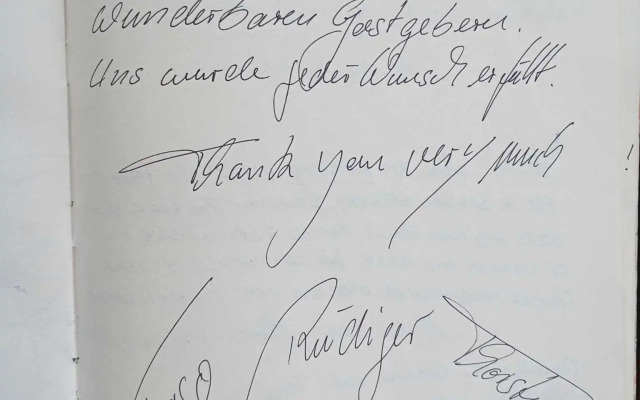 wunderbaren Gastgebern.
Uns wurde jeder Wunsch erfüllt.
Thank you very much!
Rüdiger